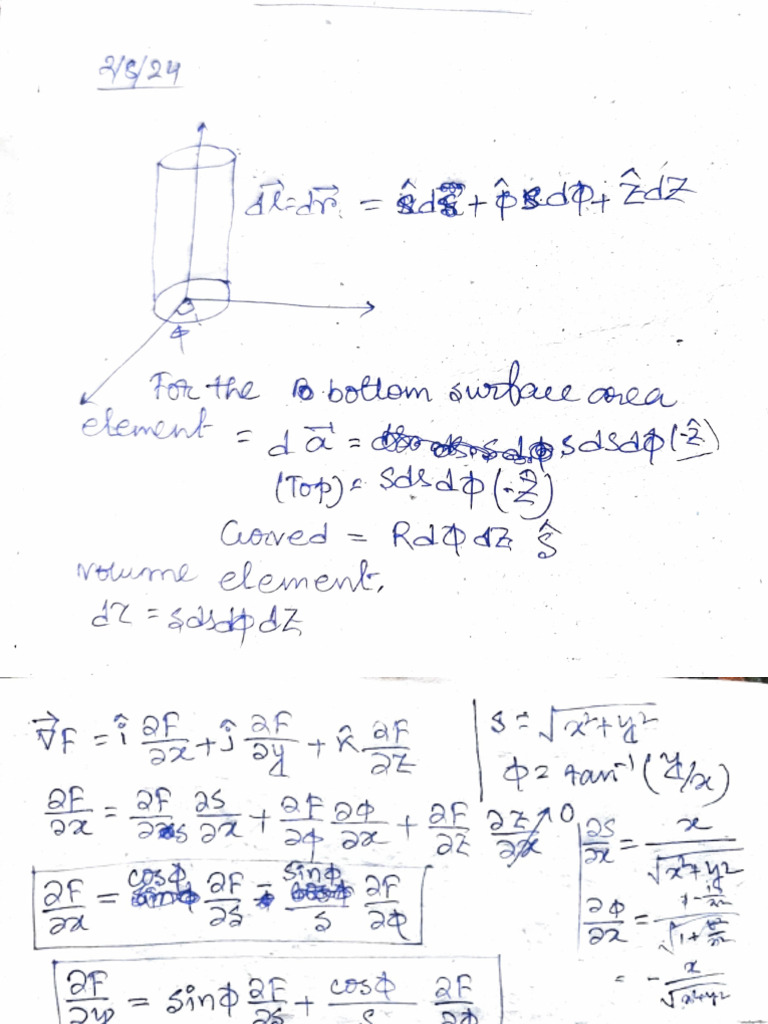 2/8/24
d\vec{l} = d\vec{r} = ŝds + φ̂ s dφ + ẑdZ
φ
For the bottom surface area
element = d\vec{a} = sdsdφ(-ẑ)
(Top) = sdsdφ(-ẑ)
Curved = Rdφdz ŝ
volume element,
dτ = sdsdφdz
∇⃗F = î ∂F/∂x + ĵ ∂F/∂y + k̂ ∂F/∂z
s = √(x²+y²)
φ = tan⁻¹(y/x)
∂F/∂x = ∂F/∂s ∂s/∂x + ∂F/∂φ ∂φ/∂x + ∂F/∂z ∂z/∂x 0
∂s/∂x = x/√(x²+y²)
∂F/∂x = cosφ ∂F/∂s - sinφ/s ∂F/∂φ
∂φ/∂x =
= - x/√(x²+y²)
∂F/∂y = sinφ ∂F/∂s + cosφ/s ∂F/∂φ